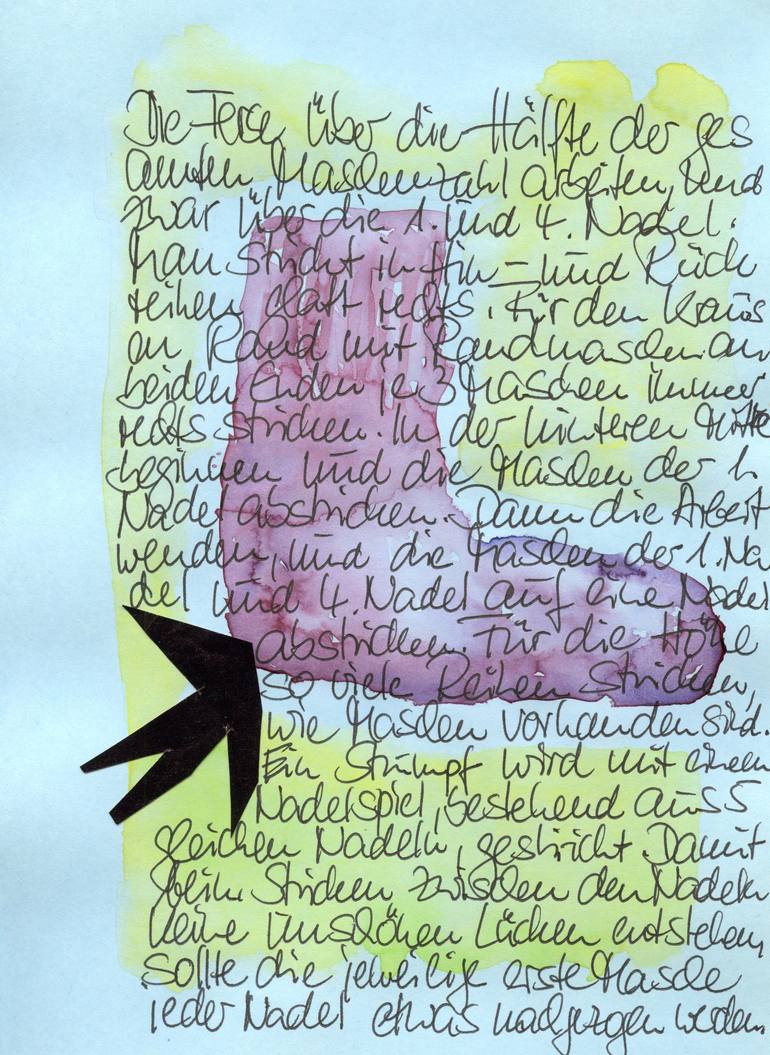 Die Ferse über die Hälfte der ges
amten Maschenzahl arbeiten, und
zwar über die 1. und 4. Nadel.
Man strickt in Hin- und Rück
reihen glatt rechts. Für den Kraus
en Rand mit Randmaschen an
beiden Enden je 3 Maschen immer
rechts stricken. In der hinteren Mitte
beginnen und die Maschen der 1.
Nadel abstricken. Dann die Arbeit
wenden, und die Maschen der 1. Na
del und 4. Nadel auf eine Nadel
abstricken. Für die Höhe
so viele Reihen stricken,
wie Maschen vorhanden sind.
Ein Strumpf wird mit einem
Nadelspiel, bestehend aus 5
gleichen Nadeln, gestrickt. Damit
beim Stricken zwischen den Nadeln
keine unschönen Lücken entstehen,
sollte die jeweilige erste Masche
jeder Nadel etwas nachgezogen werden.